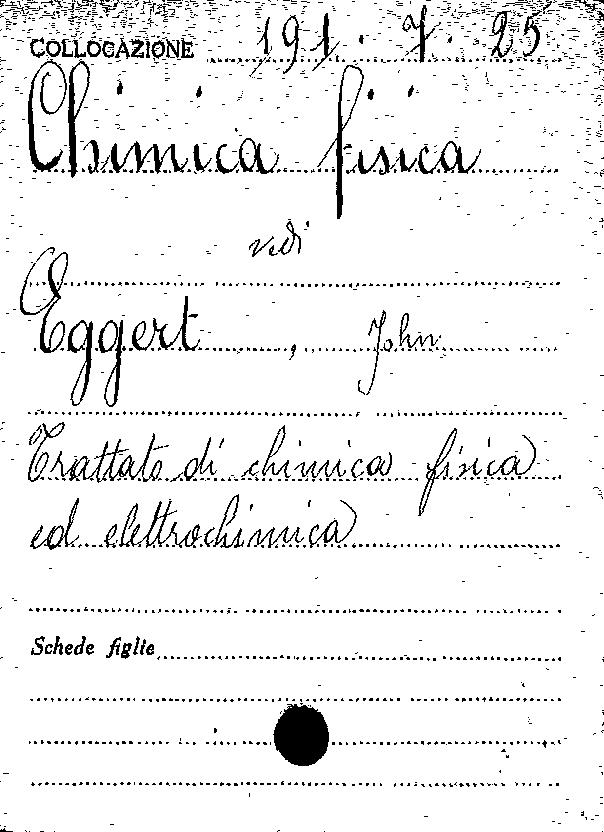 COLLOCAZIONE 191. 7. 25
Chimica fisica
vedi
Eggert, John
Trattato di chimica fisica
ed elettrochimica
Schede figlie